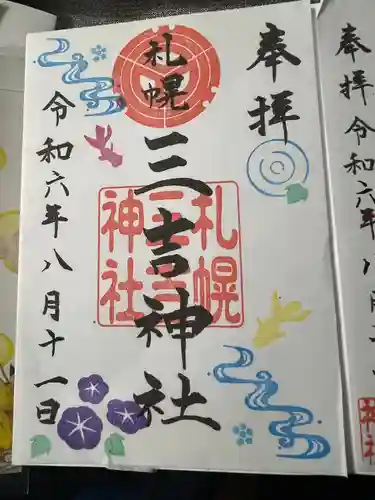 奉拝
札幌
三吉神社
札幌
三吉
神社
令和六年八月十一日
奉拝
令和六年八月十
神社